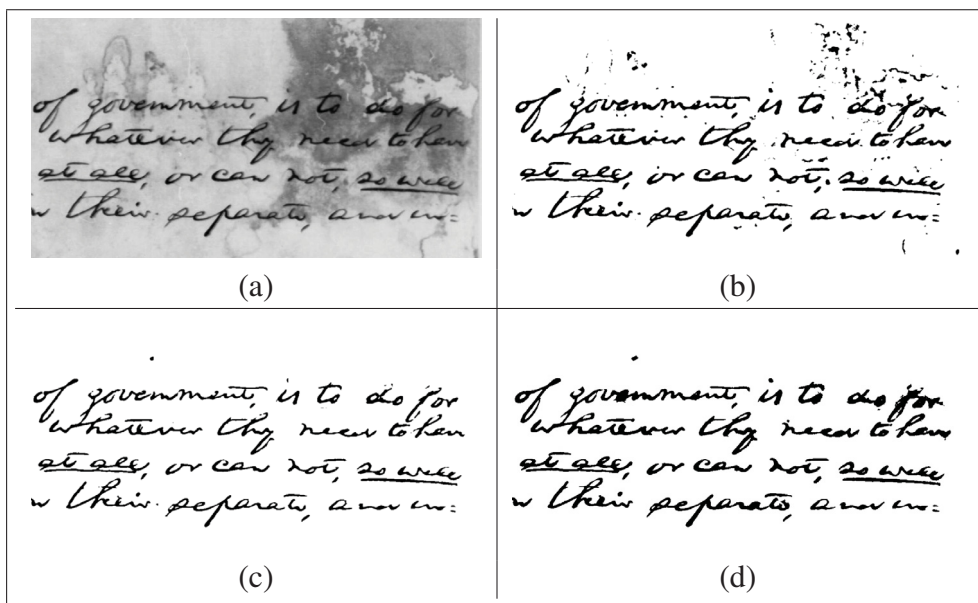 of government, is to do for
whatever they need to have
at all, or can not, so well
their separate, and in=
(a)
of government, is to do for
whatever they need to have
at all, or can not, so well
their separate, and in=
(b)
of government, is to do for
whatever they need to have
at all, or can not, so well
their separate, and in=
(c)
of government, is to do for
whatever they need to have
at all, or can not, so well
their separate, and in=
(d)